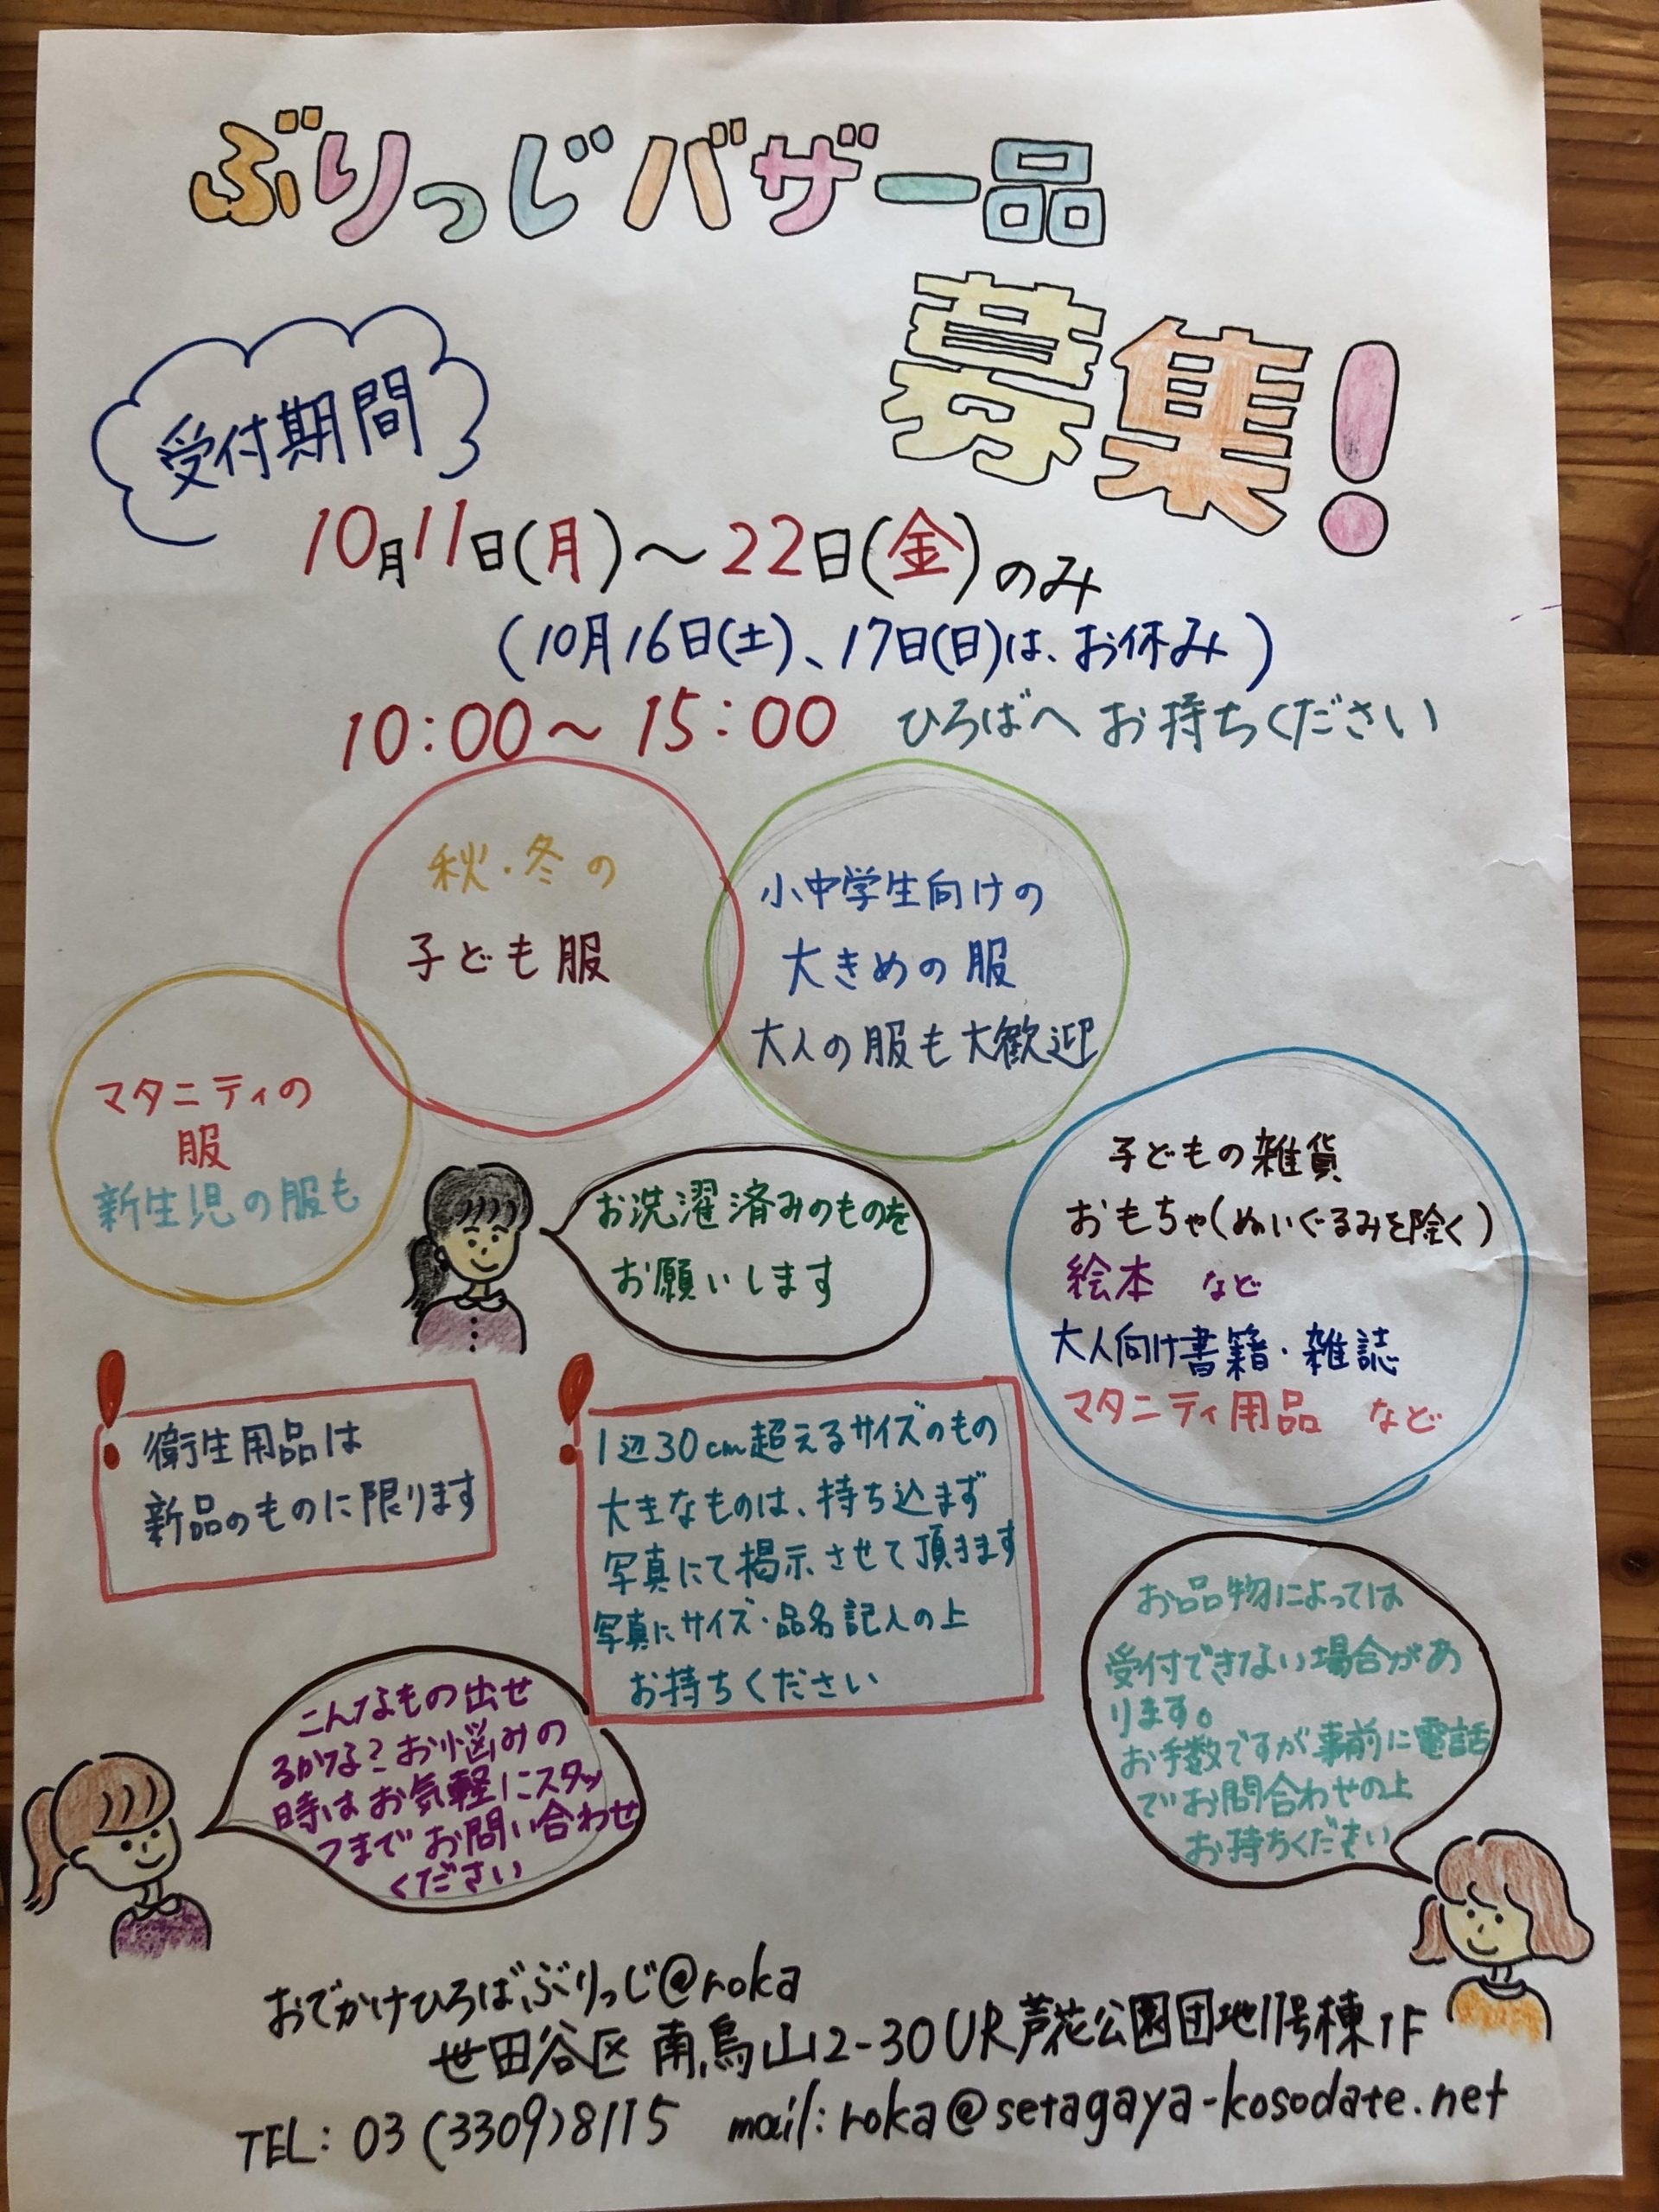 ぶりっじバザー品
募集!
受付期間
10月11日(月)～22日(金)のみ
(10月16日(土)、17日(日)は、お休み)
10:00～15:00 ひろばへお持ちください
秋・冬の
子ども服
小中学生向けの
大きめの服
大人の服も大歓迎
マタニティの
服
新生児の服も
お洗濯済みのものを
お願いします
子どもの雑貨
おもちゃ(ぬいぐるみを除く)
絵本 など
大人向け書籍・雑誌
マタニティ用品 など
!衛生用品は
新品のものに限ります
!1辺30cm超えるサイズのもの
大きなものは、持ち込まず
写真にて掲示させて頂きます
写真にサイズ・品名記入の上
お持ちください
お品物によっては
受付できない場合があ
ります。
お手数ですが事前に電話
でお問合わせの上
お持ちください
こんなもの出せ
るかな?お悩みの
時はお気軽にスタッ
フまでお問い合わせ
ください
おでかけひろばぶりっじ@roka
世田谷区南烏山2-30UR芦花公園団地11号棟1F
TEL:03(3309)8115 mail:roka@setagaya-kosodate.net